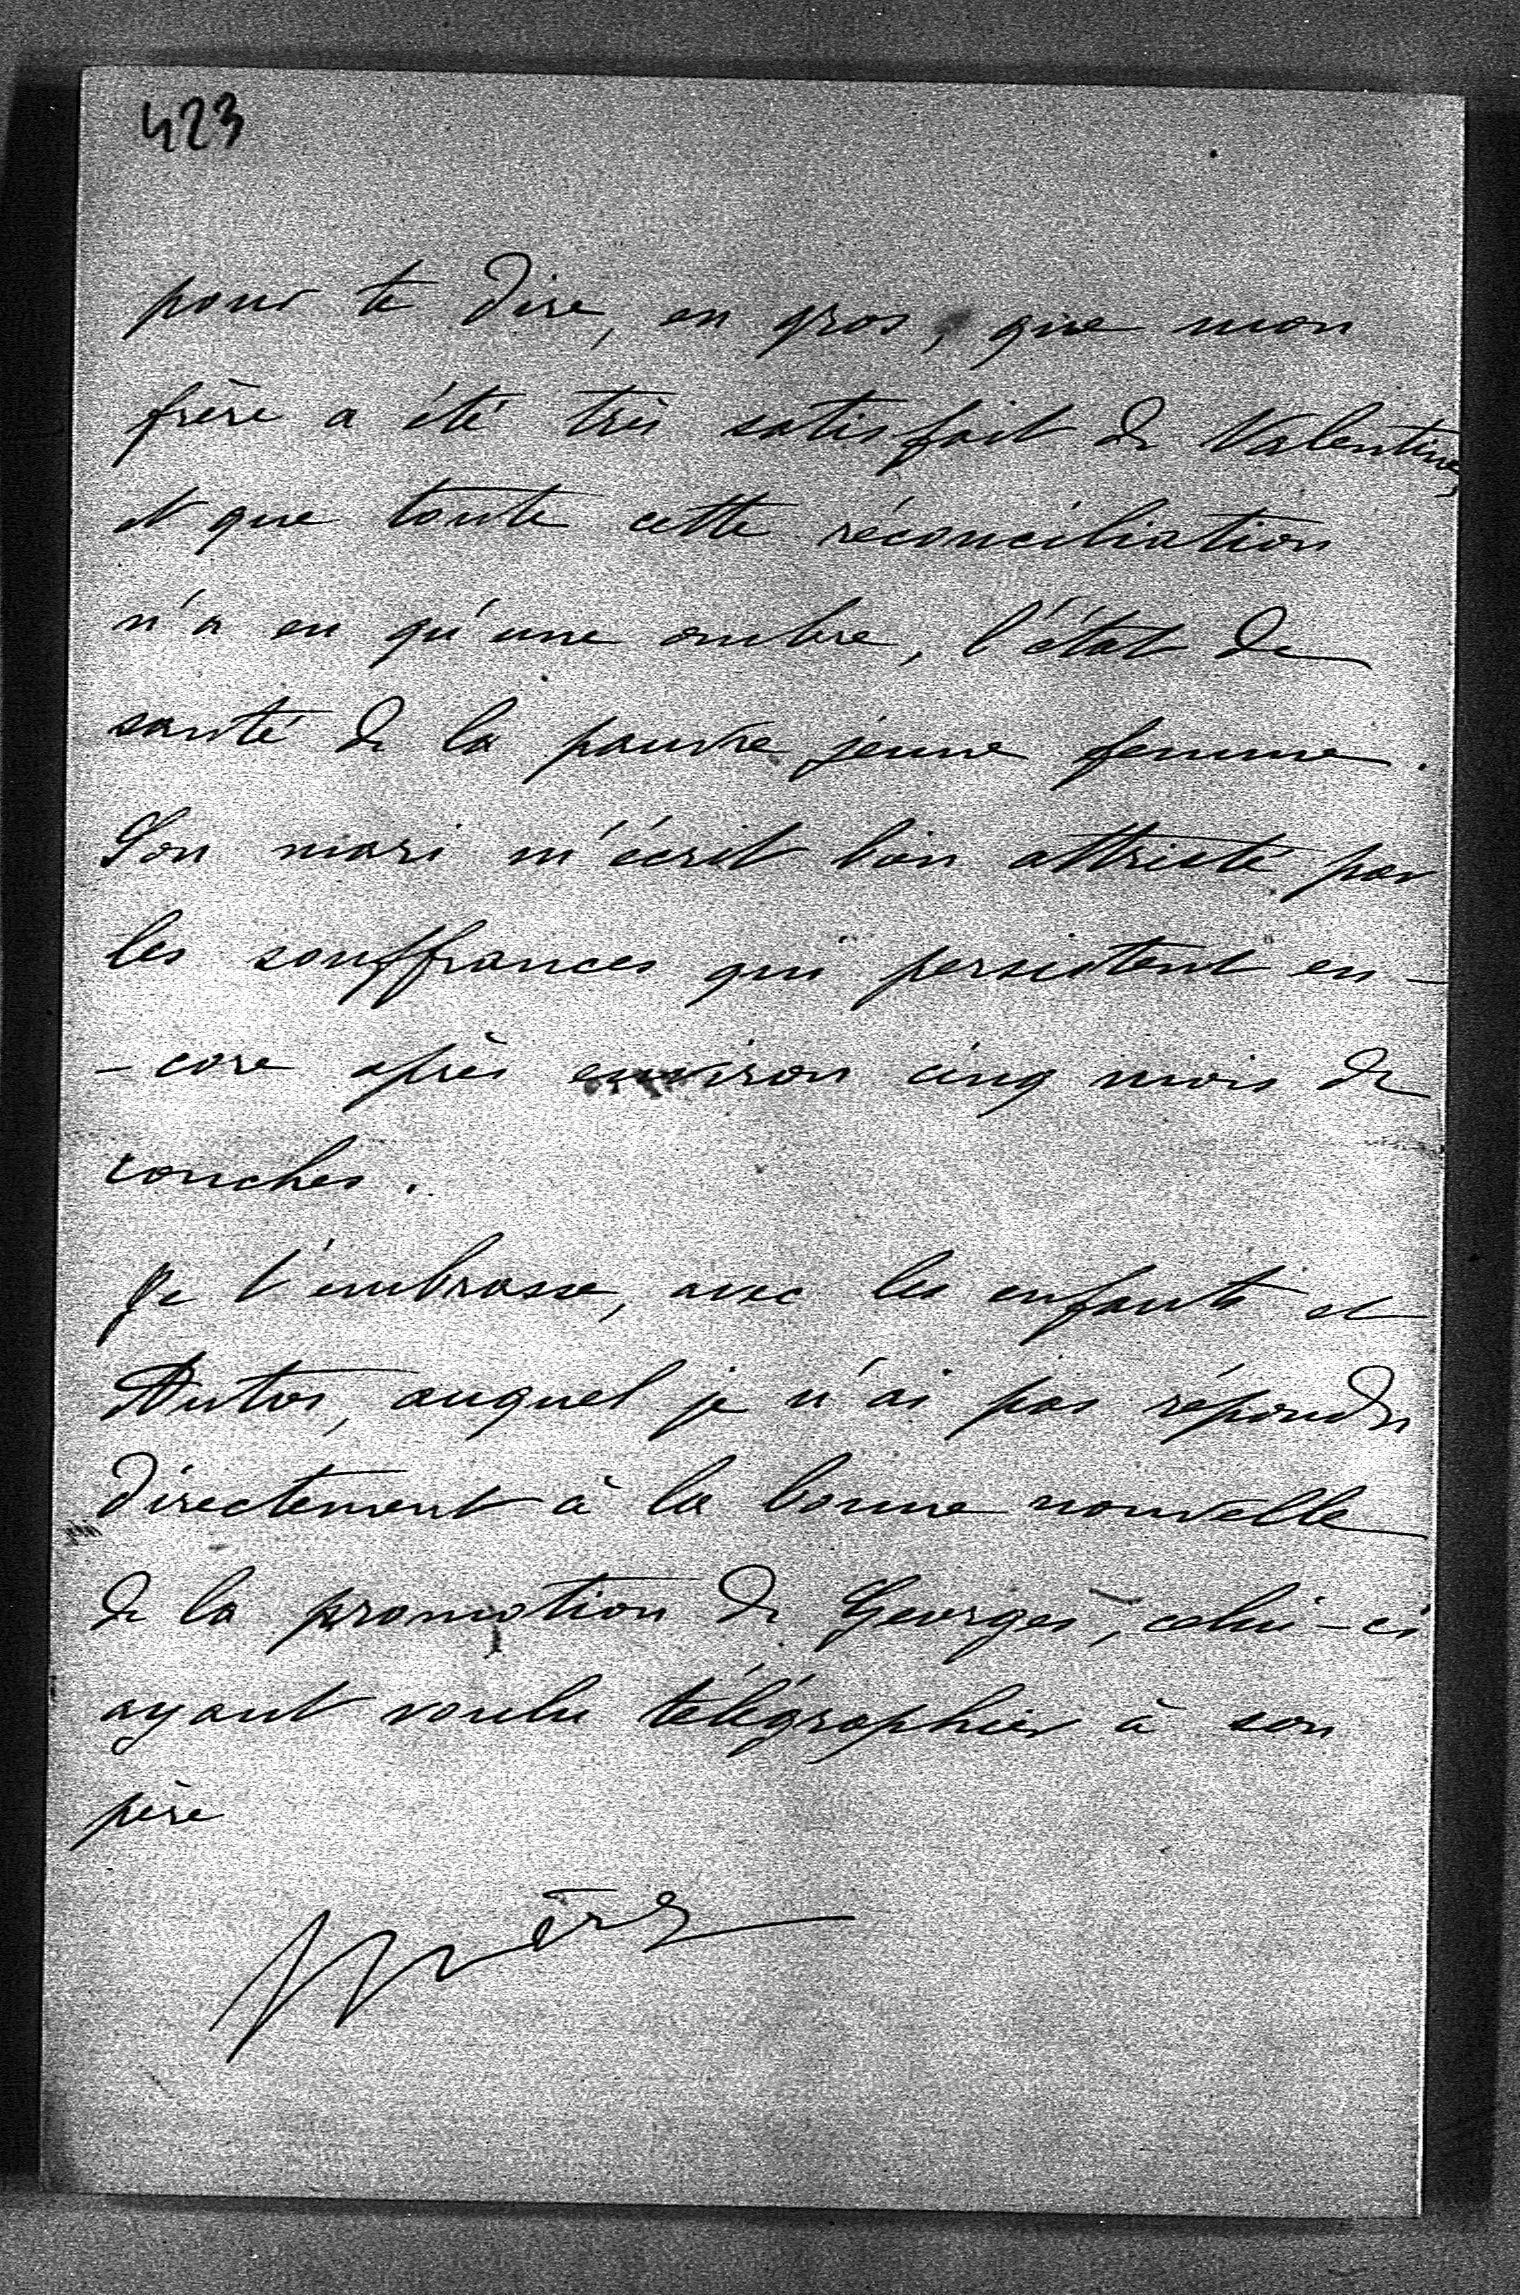 423
pour te dire, en gros, que mon
frère a été très satisfait de Valentine,
et que toute cette réconciliation
n'a eu qu'une ombre, l'état de
santé de la pauvre jeune femme.
Son mari m'écrit bien attristé par
les souffrances qui persistent en-
-core après environ cinq mois de
couches.
Je t'embrasse, avec les enfants et
auquel je n'ai pas répondu
directement à la bonne nouvelle
de la promotion de Georges, celui-ci
ayant voulu télégraphier à son
père